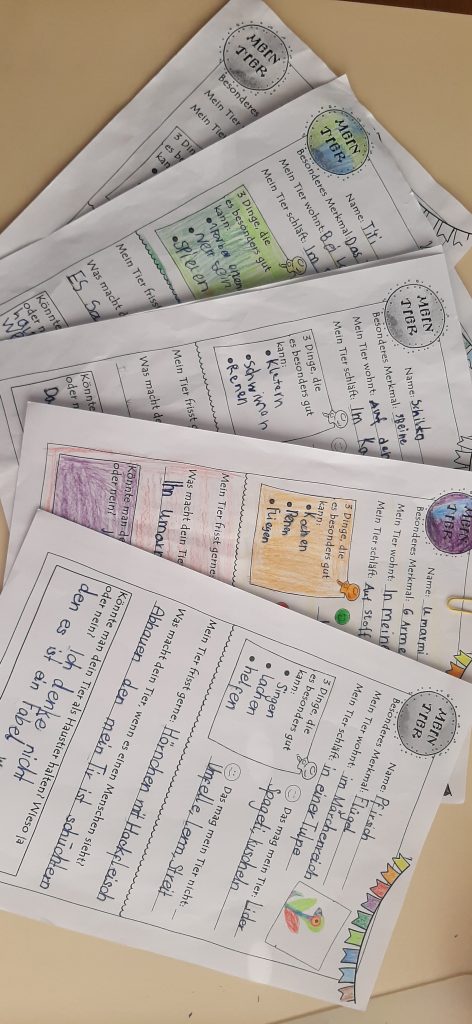 MEIN
TIER
Besonderes
Mein Tier
Mein Tie
3 Dinge
es beso
kann:
MEIN
TIER
Name: Titi
Besonderes Merkmal: Das
Mein Tier wohnt: Bei
Mein Tier schläft: Im
3 Dinge, die
es besonders gut
kann:
• Nett sein
• Spielen
Mein Tier frisst
Was macht d
Es
Könnte
oder n
MEIN
TIER
Name:
Besonderes Merkmal:
Mein Tier wohnt: Auf dem
Mein Tier schläft: Im
3 Dinge, die
es besonders gut
kann:
• Kletern
• Schwimen
• Renen
Mein Tier frisst
Was macht de
Könnte
oder n
MEIN
TIER
Name: Umarmi
Besonderes Merkmal: 6 Arme
Mein Tier wohnt: In meine
Mein Tier schläft: Auf stoff
3 Dinge, die
es besonders gut
kann:
• Kochen
• Renen
• Fliegen
Mein Tier frisst gerne
Was macht dein Tier
Ih umarm
Könnte man de
oder nein?
MEIN
TIER
Name: Pfirsich
Besonderes Merkmal: Flügel
Mein Tier wohnt: im Märchenreich
Mein Tier schläft: in einer Tulpe
3 Dinge, die
es besonders gut
kann:
• Singen
• Lachen
• helfen
Das mag mein Tier: Lider
Das mag mein Tier nicht:
Lerm, Streit
Mein Tier frisst gerne: Hörnchen mit Hackfleisch
Was macht dein Tier, wenn es einen Menschen sieht?
Abhauen den mein Tir ist schüchtern
Könnte man dein Tier als Haustier halten? Wieso ja
oder nein?
Ich denke nicht
den es ist ein Fabel